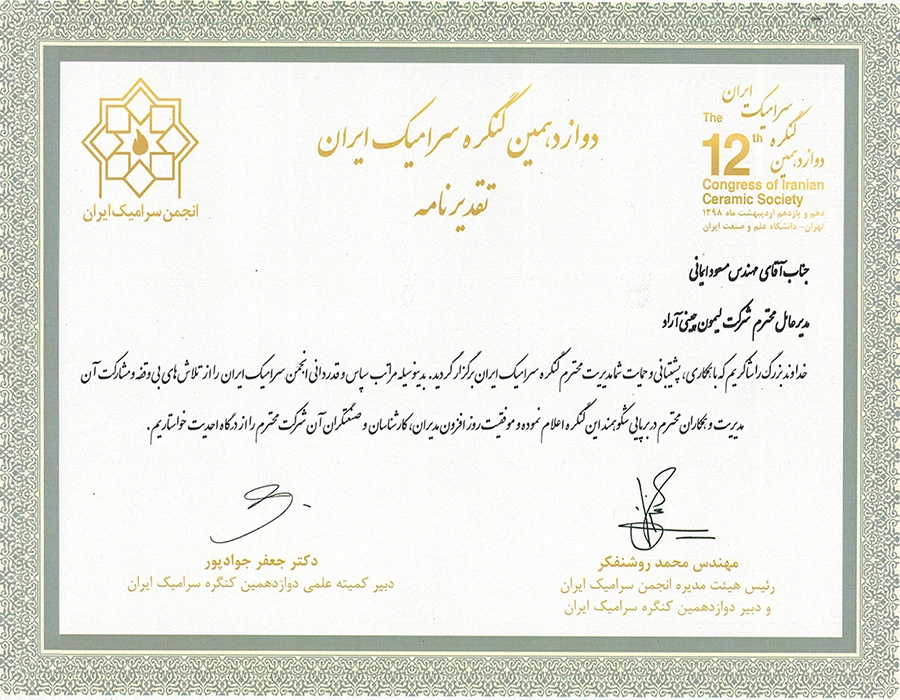 دوازدهمین کنگره سرامیک ایران
تقدیرنامه
انجمن سرامیک ایران
ایران
سرامیک
کنگره
دوازدهمین
The
12th
Congress of Iranian
Ceramic Society
دهم و یازدهم اردیبهشت ماه ۱۳۹۸
تهران- دانشگاه علم و صنعت ایران
جناب آقای مهندس مسعود ایمانی
مدیرعامل محترم شرکت لیمون چینی آراد
خداوند بزرگ را شاکریم که با همکاری، پشتیبانی و حمایت شما مدیریت محترم کنگره سرامیک ایران برگزار گردید. بدینوسیله مراتب سپاس و قدردانی انجمن سرامیک ایران را از تلاش های بی وقفه و مشارکت آن
مدیریت و همکاران محترم در برپایی شکوهمند این کنگره اعلام نموده و موفقیت روز افزون مدیران، کارشناسان و صنعتگران آن شرکت محترم را از درگاه احدیت خواستاریم.
مهندس محمد روشنفکر
رئیس هیئت مدیره انجمن سرامیک ایران
و دبیر دوازدهمین کنگره سرامیک ایران
دکتر جعفر جوادپور
دبیر کمیته علمی دوازدهمین کنگره سرامیک ایران